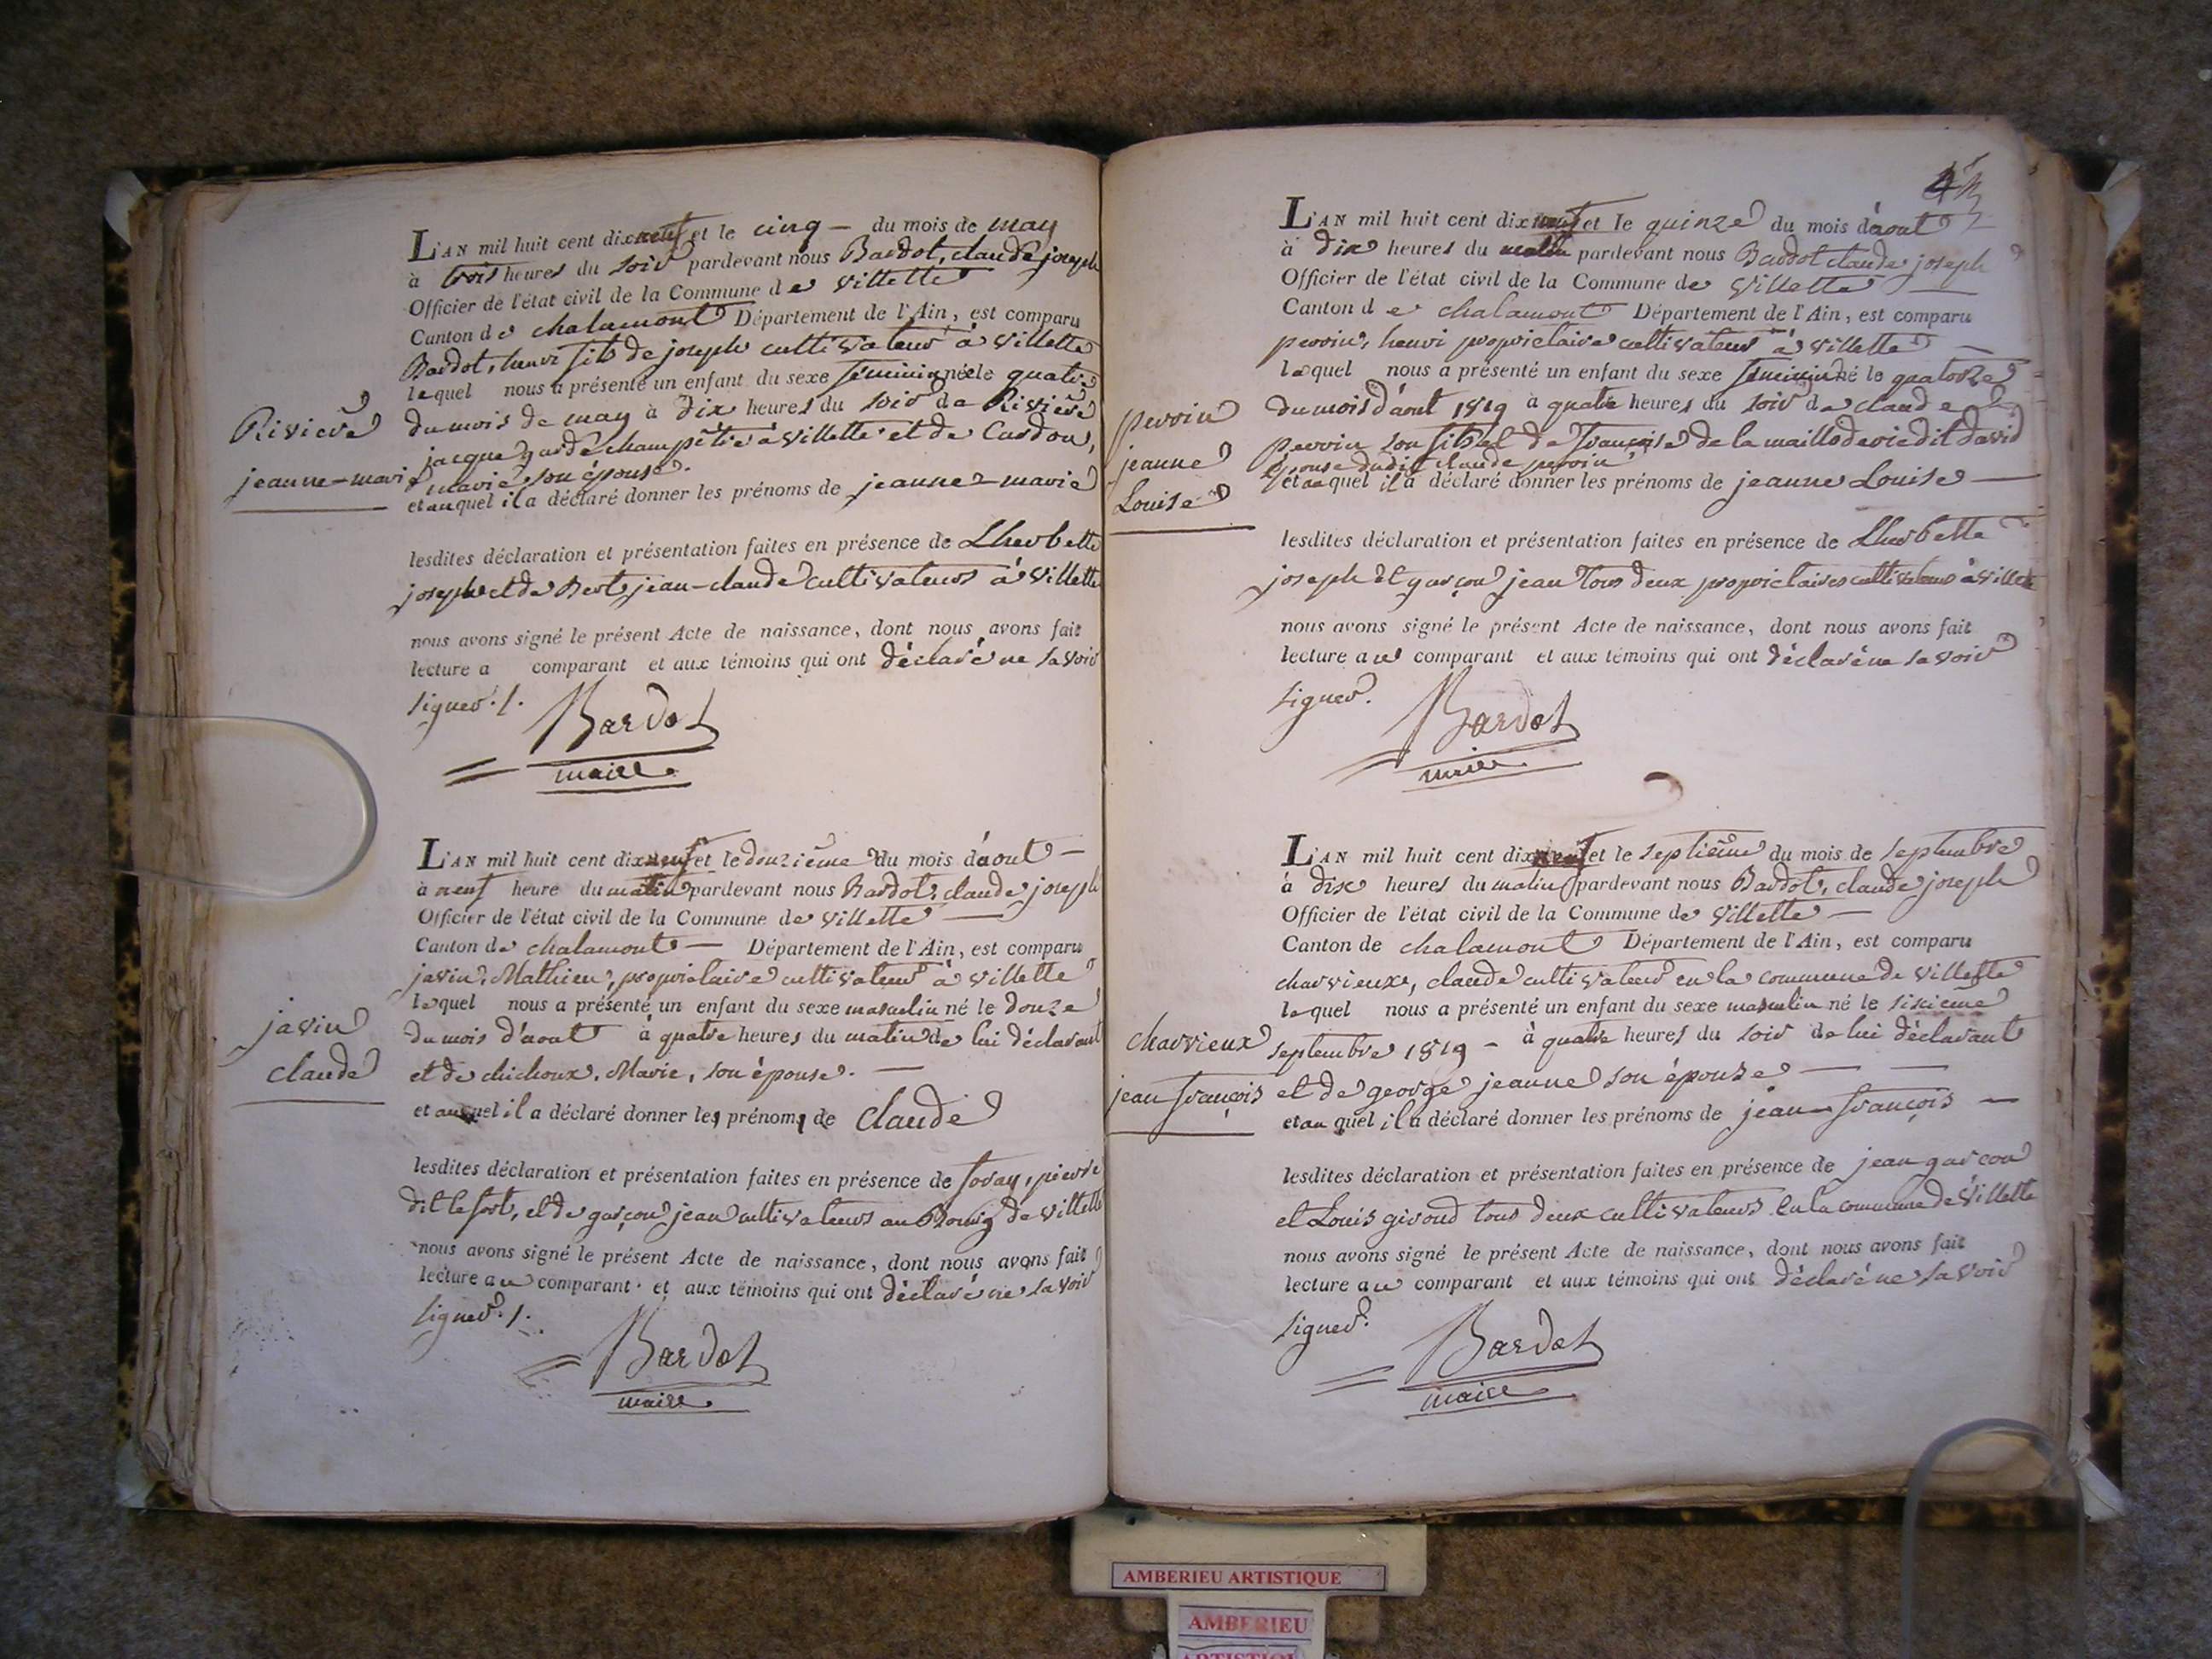 L'AN mil huit cent dix neuf et le cinq - du mois de may
à trois heures du soir pardevant nous Bardot, claude joseph
Officier de l'état civil de la Commune de villette
Canton de chalamont Département de l'Ain, est comparu
Bardot, henri fils de joseph cultivateur à villette
lequel nous a présenté un enfant du sexe féminin née le quatre
du mois de may à dix heures du soir de Rivière
jacque garde champêtre à villette et de Cardon,
marie son épouse.
et auquel il a déclaré donner les prénoms de jeanne-marie
Rivière
jeanne-marie
lesdites déclaration et présentation faites en présence de Lherbette
joseph et de Bert jean-claude cultivateurs à villette
nous avons signé le présent Acte de naissance, dont nous avons fait
lecture a comparant et aux témoins qui ont déclaré ne savoir
signer./.
Bardot
maire
L'AN mil huit cent dix neuf et le douzième du mois d'aout -
à neuf heure du matin pardevant nous Bardot, claude joseph
Officier de l'état civil de la Commune de villette -
Canton de chalamont - Département de l'Ain, est comparu
javin, Mathieu, propriétaire cultivateur à villette
lequel nous a présenté un enfant du sexe masculin né le douze
du mois d'aout à quatre heures du matin de lui déclarant
et de chichoux, Marie, son épouse. -
et auquel il a déclaré donner les prénoms de claude
javin
claude
lesdites déclaration et présentation faites en présence de foray, pierre
dit le fort, et de garçon jean cultivateurs au Bourg de villette
nous avons signé le présent Acte de naissance, dont nous avons fait
lecture au comparant et aux témoins qui ont déclaré ne savoir
signer./.
Bardot
maire
L'AN mil huit cent dix neuf et le quinze du mois d'aout
à dix heures du matin pardevant nous Bardot claude joseph
Officier de l'état civil de la Commune de villette -
Canton de chalamont Département de l'Ain, est comparu
perroin, henri propriétaire cultivateur à villette -
lequel nous a présenté un enfant du sexe féminin né le quatorze
du mois d'aout 1819 à quatre heures du soir de claude
perroin son fils et de françoise de la dit david
épouse dudit claude perroin
et auquel il a déclaré donner les prénoms de jeanne Louise -
perroin
jeanne
Louise
lesdites déclaration et présentation faites en présence de Lherbette
joseph et garçon jean tous deux propriétaires cultivateurs à villette
nous avons signé le présent Acte de naissance, dont nous avons fait
lecture au comparant et aux témoins qui ont déclaré ne savoir
signer.
Bardot
maire
L'AN mil huit cent dix neuf et le septième du mois de septembre
à dix heures du matin pardevant nous Bardot, claude joseph
Officier de l'état civil de la Commune de villette -
Canton de chalamont Département de l'Ain, est comparu
charvieux, claude cultivateur en la commune de villette
lequel nous a présenté un enfant du sexe masculin né le sixième
septembre 1819 - à quatre heures du soir de lui déclarant
et de george jeanne son épouse - -
et au quel il a déclaré donner les prénoms de jean-françois -
charvieux
jean françois
lesdites déclaration et présentation faites en présence de jean garçon
et Louis giroud tous deux cultivateurs en la commune de Villette
nous avons signé le présent Acte de naissance, dont nous avons fait
lecture au comparant et aux témoins qui ont déclaré ne savoir
signer.
Bardot
maire
AMBERIEU ARTISTIQUE
AMBERIEU
ARTISTIQUE